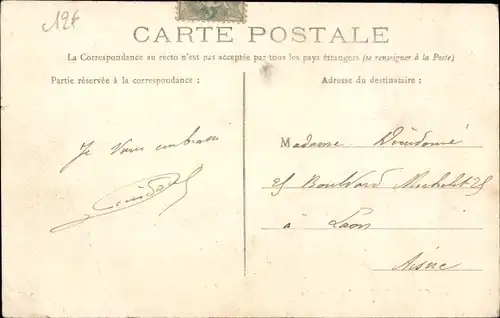 12f
CARTE POSTALE
La Correspondance au recto n'est pas acceptée par tous les pays étrangers (se renseigner à la Poste)
Partie réservée à la correspondance :
Adresse du destinataire :
Je vous embrasse
Madame Dieudonné
25 Boulevard Michelet 25
à Laon
Aisne